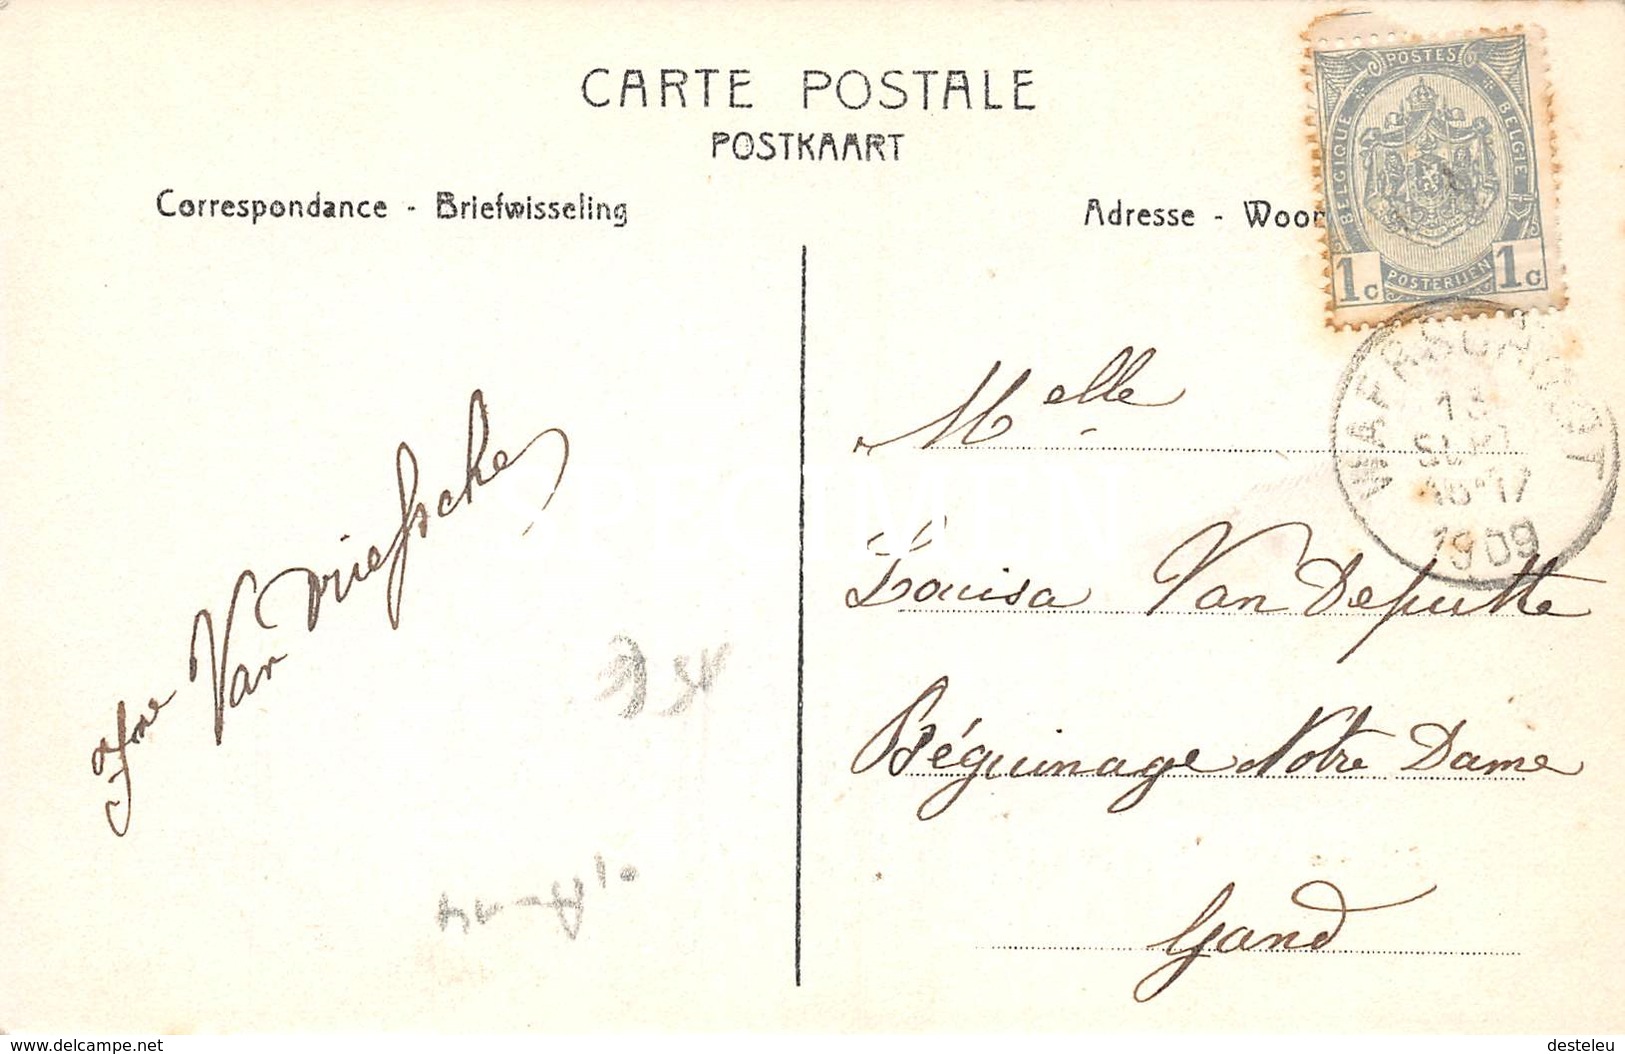 CARTE POSTALE
POSTKAART
Correspondance - Briefwisseling
Adresse - Woon
POSTES
BELGIQUE
BELGIE
1c POSTERIJEN 1c
WAERSCHOOT
13
SEPT
16-17
1909
Melle
Louisa Van Deputte
Béguinage Notre Dame
Gand
Van Vriessche
www.delcampe.net
desteleu